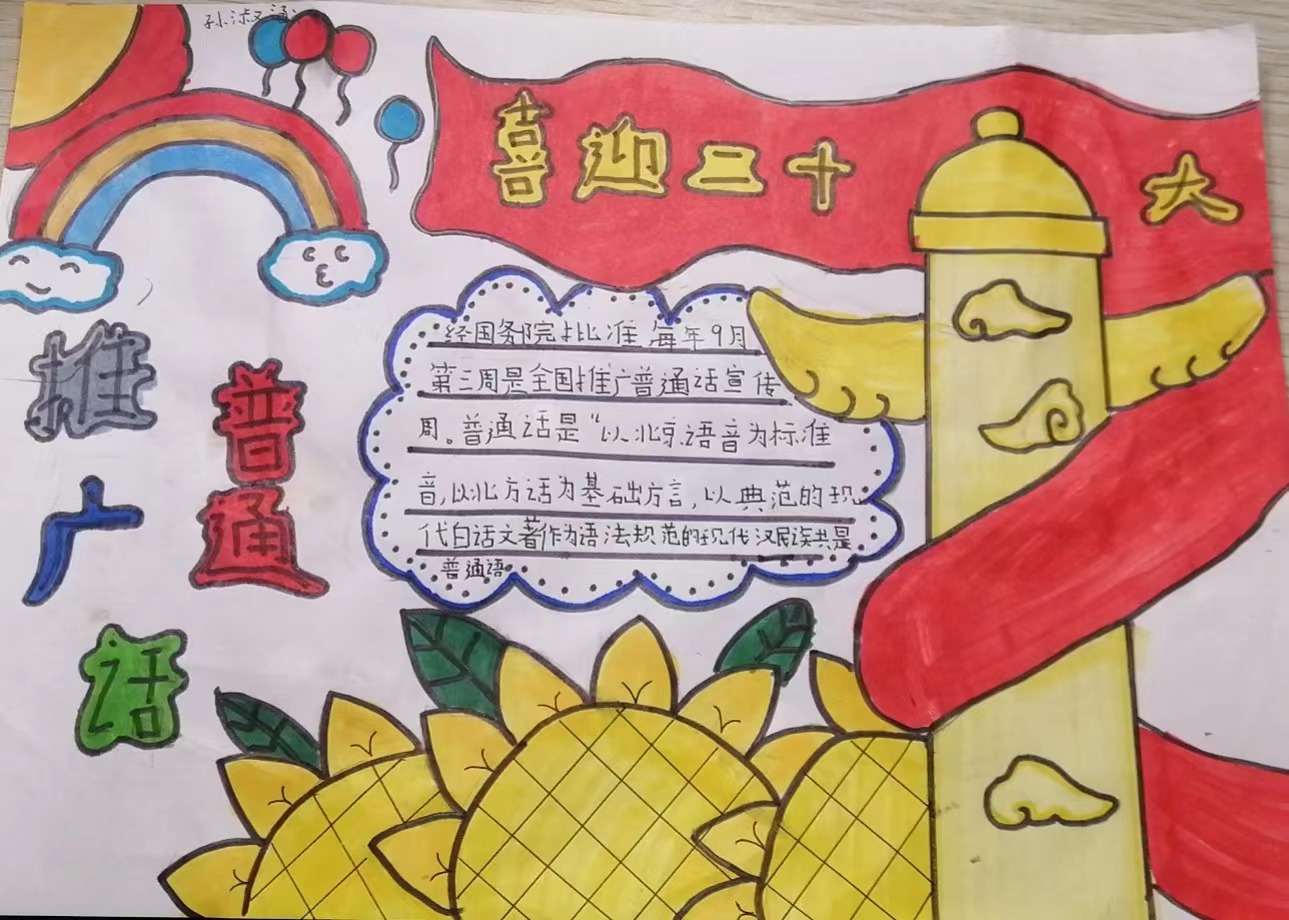 孙淑涵
喜迎二十大
推广
普通
话
经国务院批准,每年9月
第三周是全国推广普通话宣传
周。普通话是“以北京语音为标准
音,以北方话为基础方言,以典范的现
代白话文著作为语法规范的现代汉民族共是
普通语